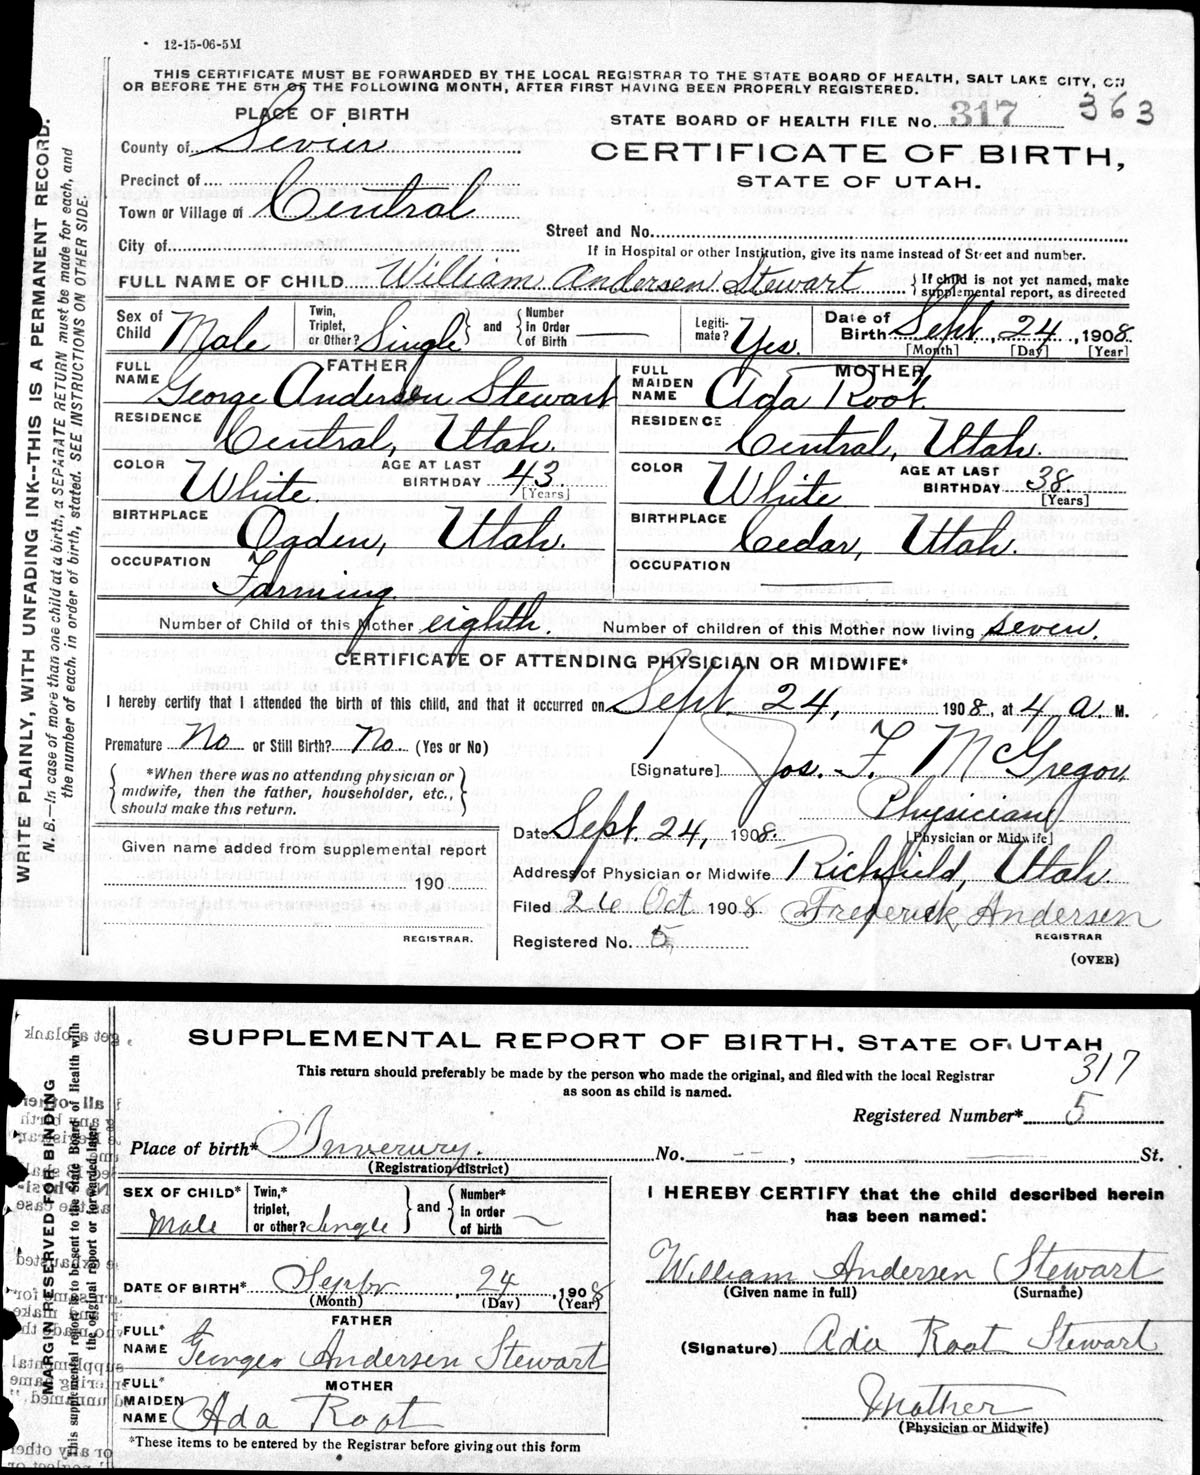 12-15-06-5M
THIS CERTIFICATE MUST BE FORWARDED BY THE LOCAL REGISTRAR TO THE STATE BOARD OF HEALTH, SALT LAKE CITY, ON
OR BEFORE THE 5TH OF THE FOLLOWING MONTH, AFTER FIRST HAVING BEEN PROPERLY REGISTERED.
PLACE OF BIRTH
STATE BOARD OF HEALTH FILE No. 317 363
County of Sevier
CERTIFICATE OF BIRTH,
STATE OF UTAH.
Precinct of
Town or Village of Central
Street and No.
City of
If in Hospital or other Institution, give its name instead of Street and number.
FULL NAME OF CHILD William Andersen Stewart { If child is not yet named, make
supplemental report, as directed
Sex of Child Male Twin, Triplet, or Other? Single and { Number in Order of Birth — Legiti-mate? Yes. Date of Birth Sept. 24, 1908.
[Month] [Day] [Year]
FATHER MOTHER
FULL NAME George Andersen Stewart FULL MAIDEN NAME Ada Root.
RESIDENCE Central, Utah. RESIDENCE Central, Utah.
COLOR White. AGE AT LAST BIRTHDAY 43 [Years] COLOR White AGE AT LAST BIRTHDAY 38. [Years]
BIRTHPLACE Ogden, Utah. BIRTHPLACE Cedar, Utah.
OCCUPATION Farming. OCCUPATION —
Number of Child of this Mother eighth. Number of children of this Mother now living seven.
CERTIFICATE OF ATTENDING PHYSICIAN OR MIDWIFE*
I hereby certify that I attended the birth of this child, and that it occurred on Sept. 24, 1908, at 4 a. M.
Premature No or Still Birth? No. (Yes or No)
[Signature] Jos. F. McGregor
{ *When there was no attending physician or
midwife, then the father, householder, etc.,
should make this return. }
Physician
[Physician or Midwife]
Date Sept. 24, 1908.
Given name added from supplemental report
190
REGISTRAR.
Address of Physician or Midwife Richfield, Utah
Filed 26 Oct 1908 Frederick Andersen
REGISTRAR
Registered No. 5
(OVER)
WRITE PLAINLY, WITH UNFADING INK--THIS IS A PERMANENT RECORD.
N. B.—In case of more than one child at a birth, a SEPARATE RETURN must be made for each, and
the number of each, in order of birth, stated. SEE INSTRUCTIONS ON OTHER SIDE.
SUPPLEMENTAL REPORT OF BIRTH, STATE OF UTAH
317
This return should preferably be made by the person who made the original, and filed with the local Registrar
as soon as child is named.
Registered Number* 5
Place of birth* Inverury. No. -- , — St.
(Registration district)
SEX OF CHILD* Male Twin,* triplet, or other? Single and { Number* in order of birth —
I HEREBY CERTIFY that the child described herein
has been named:
William Andersen Stewart
(Given name in full) (Surname)
DATE OF BIRTH* Septbr, 24, 1908
(Month) (Day) (Year)
FATHER
FULL* NAME George Andersen Stewart
(Signature) Ada Root Stewart
MOTHER
FULL* MAIDEN NAME Ada Root
Mother
(Physician or Midwife)
*These items to be entered by the Registrar before giving out this form
MARGIN RESERVED FOR BINDING
This supplemental report is to be sent to the State Board of Health with
the original report or forwarded later.